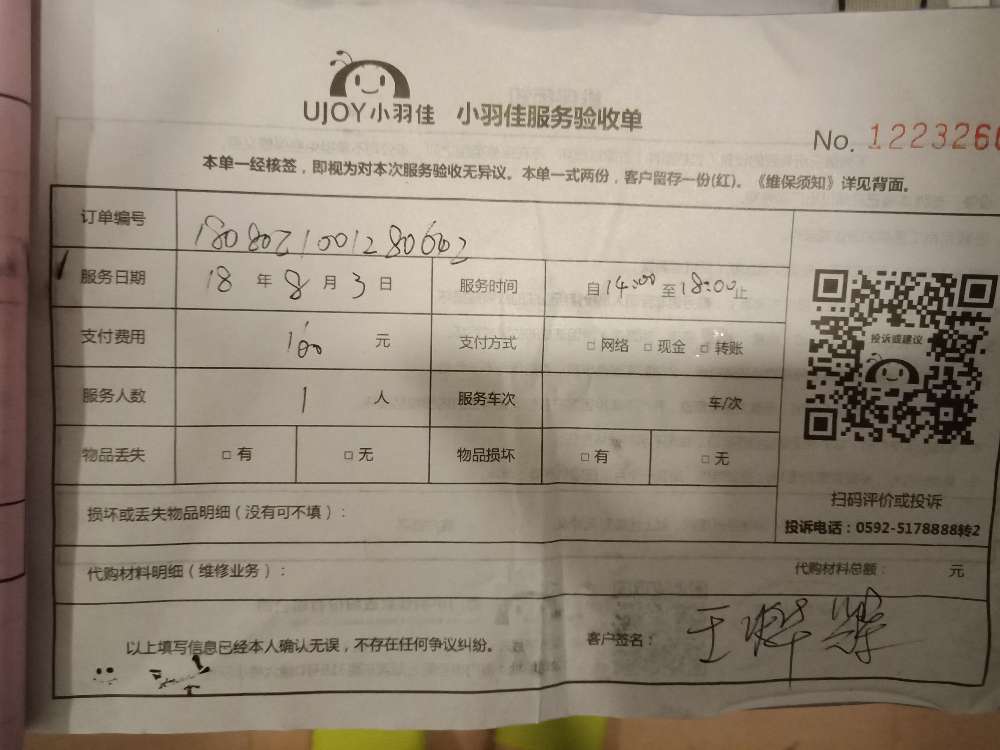 UJOY小羽佳 小羽佳服务验收单
No. 1223260
本单一经核签，即视为对本次服务验收无异议。本单一式两份，客户留存一份(红)。《维保须知》详见背面。
订单编号 1808021001280602
服务日期 18 年 8 月 3 日 服务时间 自14:00至18:00止
支付费用 100 元 支付方式 □ 网络 □ 现金 □ 转账
服务人数 1 人 服务车次 车/次
物品丢失 □ 有 □ 无 物品损坏 □ 有 □ 无
投诉或建议
扫码评价或投诉
投诉电话：0592-5178888转2
损坏或丢失物品明细（没有可不填）：
代购材料明细（维修业务）： 代购材料总额： 元
以上填写信息已经本人确认无误，不存在任何争议纠纷。 客户签名： 王